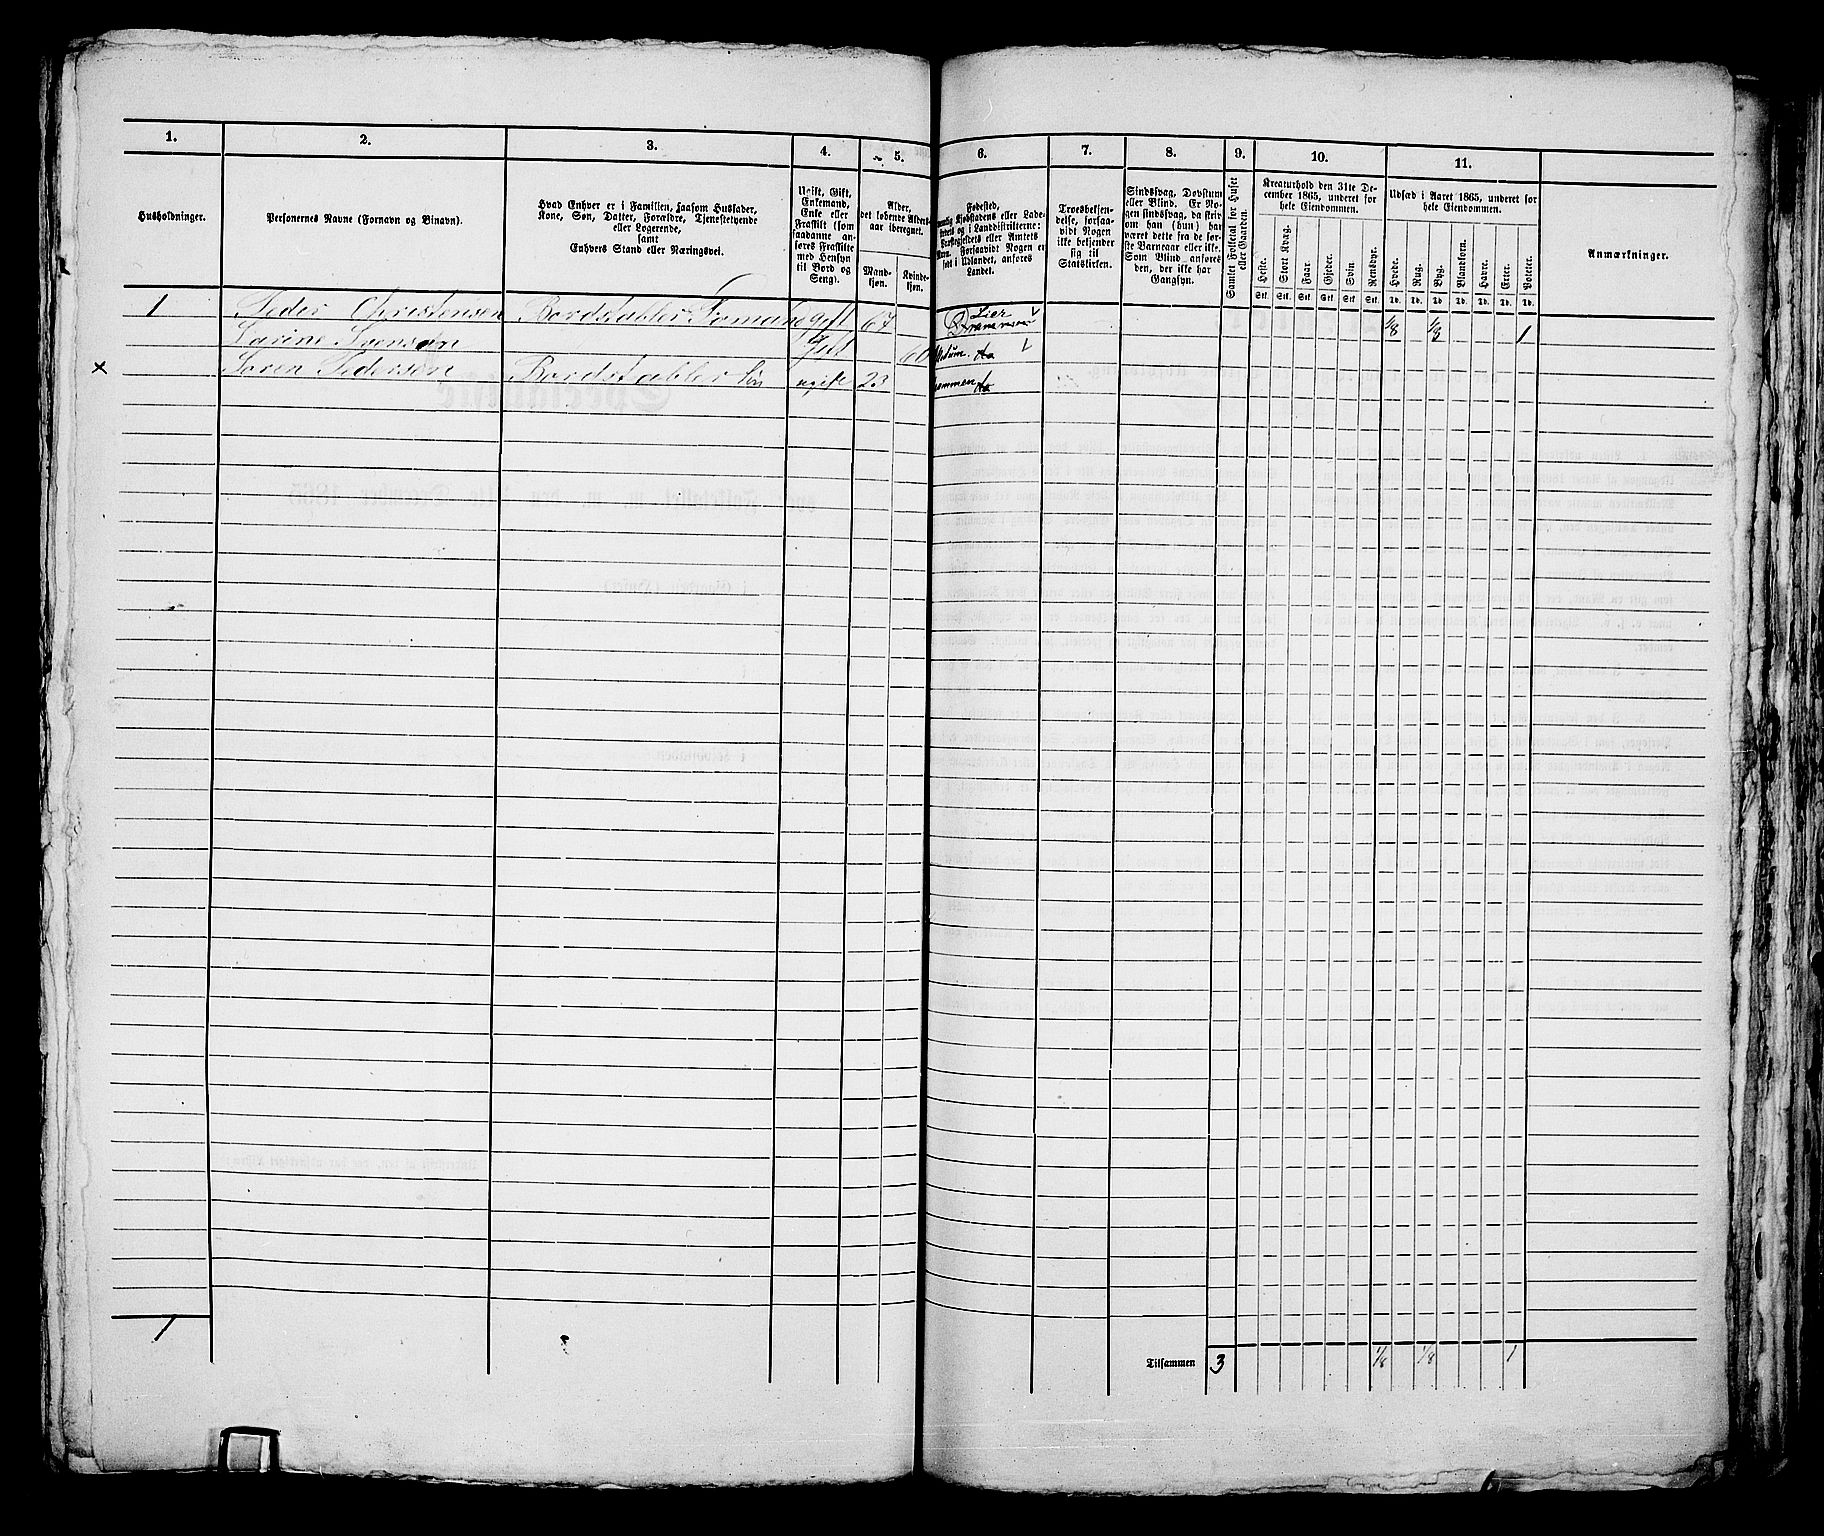 1. 2. 3. 4. 5. 6. 7. 8. 9. 10. 11.
Husholdninger.
Personernes Navne (Fornavn og Binavn).
Hvad Enhver er i Familien, saasom Husfader,
Kone, Søn, Datter, Forældre, Tjenestetyende
eller Logerende,
samt
Enhvers Stand eller Næringsvei.
Ugift, Gift,
Enkemand,
Enke eller
Fraskilt (som
saadanne an-
føres Fraskilte
med Hensyn
til Bord og
Seng).
Alder,
det løbende Alders-
aar iberegnet.
Mand-
kjøn.
Kvinde-
kjøn.
Fødested,
Kjøbstadens eller Lade-
stedets og i Landdistrikterne:
Præstegjeldets eller Amtets
Navn. Forsaavidt Nogen er
født i Udlandet, anføres
Landet.
Troesbekjen-
delse, forsaa-
vidt Nogen
ikke bekjender
sig til
Statskirken.
Sindssvag, Døvstum
eller Blind. Er No-
gen sindssvag, da skriv
om han (hun) har
været dette fra de før-
ste Barneaar eller ikke.
Som Blind anføres
den, der ikke har
Gangsyn.
Samlet Folketal for Huset
eller Gaarden.
Kreaturhold den 31te De-
cember 1865, underet for
hele Eiendommen.
Heste. Stort Kvæg. Faar. Gjeder. Svin. Rensdyr.
Stk. Stk. Stk. Stk. Stk. Stk.
Udsæd i Aaret 1865, underet for
hele Eiendommen.
Hvede. Rug. Byg. Blandkorn. Havre. Erter. Poteter.
Td. Td. Td. Td. Td. Td. Td.
Anmærkninger.
1 Peder Christensen Bordstabler Formand Gift 67 Lier Drammen 1/8 1/8 1
Karine Svensøn Gift 60 Modum do
× Søren Pedersøn Bordstabler Søn ugift 23 Drammen do
1
Tilsammen 3 1/8 1/8 1